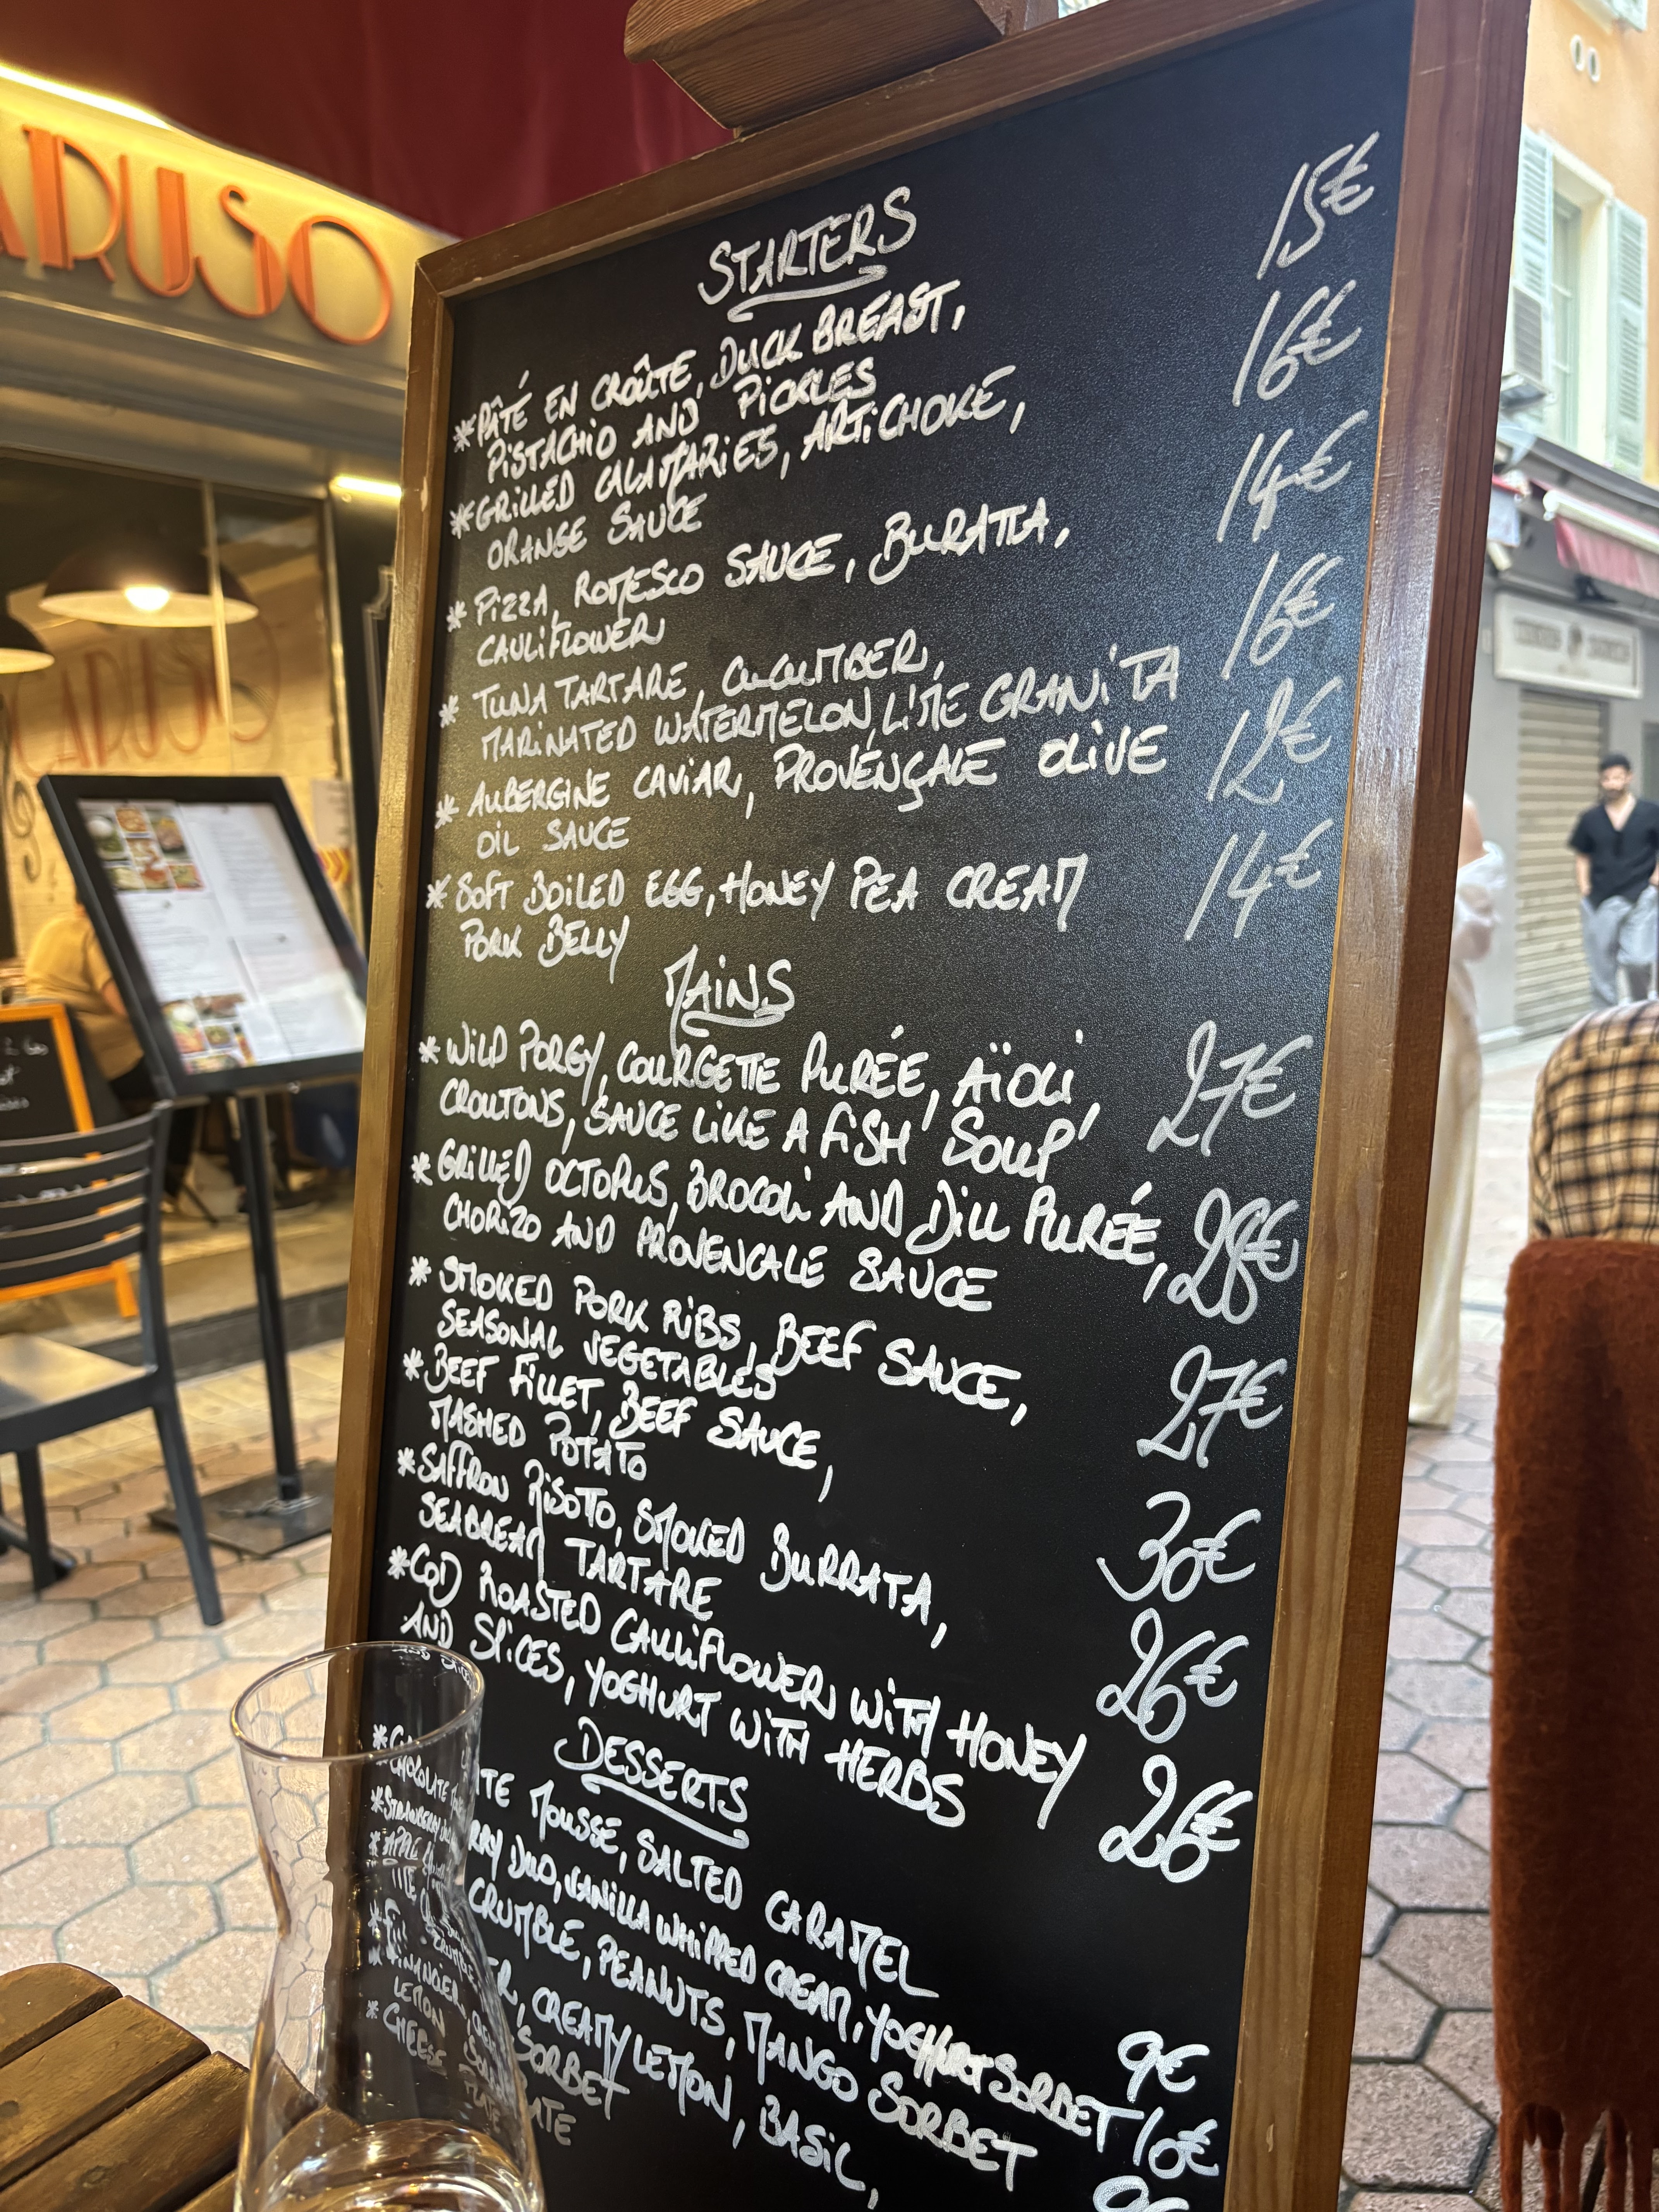 CARUSO
STARTERS
*PÂTÉ EN CROÛTE, DUCK BREAST, 15€
PISTACHIO AND PICKLES
*GRILLED CALAMARIES, ARTICHOKE, 16€
ORANGE SAUCE
* PIZZA, ROMESCO SAUCE, BURATTA, 14€
CAULIFLOWER
* TUNA TARTARE, CUCUMBER, 16€
MARINATED WATERMELON, LIME GRANITA
* AUBERGINE CAVIAR, PROVENÇALE OLIVE 12€
OIL SAUCE
* SOFT BOILED EGG, HONEY PEA CREAM 14€
PORK BELLY
MAINS
*WILD PORGY, COURGETTE PURÉE, AÏOLI, 27€
CROUTONS, SAUCE LIKE A FISH SOUP
*GRILLED OCTOPUS, BROCOLI AND DILL PURÉE, 28€
CHORIZO AND PROVENCALE SAUCE
* SMOKED PORK RIBS, BEEF SAUCE, 27€
SEASONAL VEGETABLES
*BEEF FILLET, BEEF SAUCE, 30€
MASHED POTATO
*SAFFRON RISOTTO, SMOKED BURRATA, 26€
SEABREAM TARTARE
*COD ROASTED CAULIFLOWER WITH HONEY 26€
AND SLICES, YOGHURT WITH HERBS
DESSERTS
*CHOCOLATE MOUSSE, SALTED CARAMEL 9€
*STRAWBERRY DUO, VANILLA WHIPPED CREAM, YOGHURT SORBET 10€
*APPLE CRUMBLE, PEANUTS, MANGO SORBET
*FINANCIER, CREAMY LEMON, BASIL,
LEMON SORBET
*CHEESE PLATE